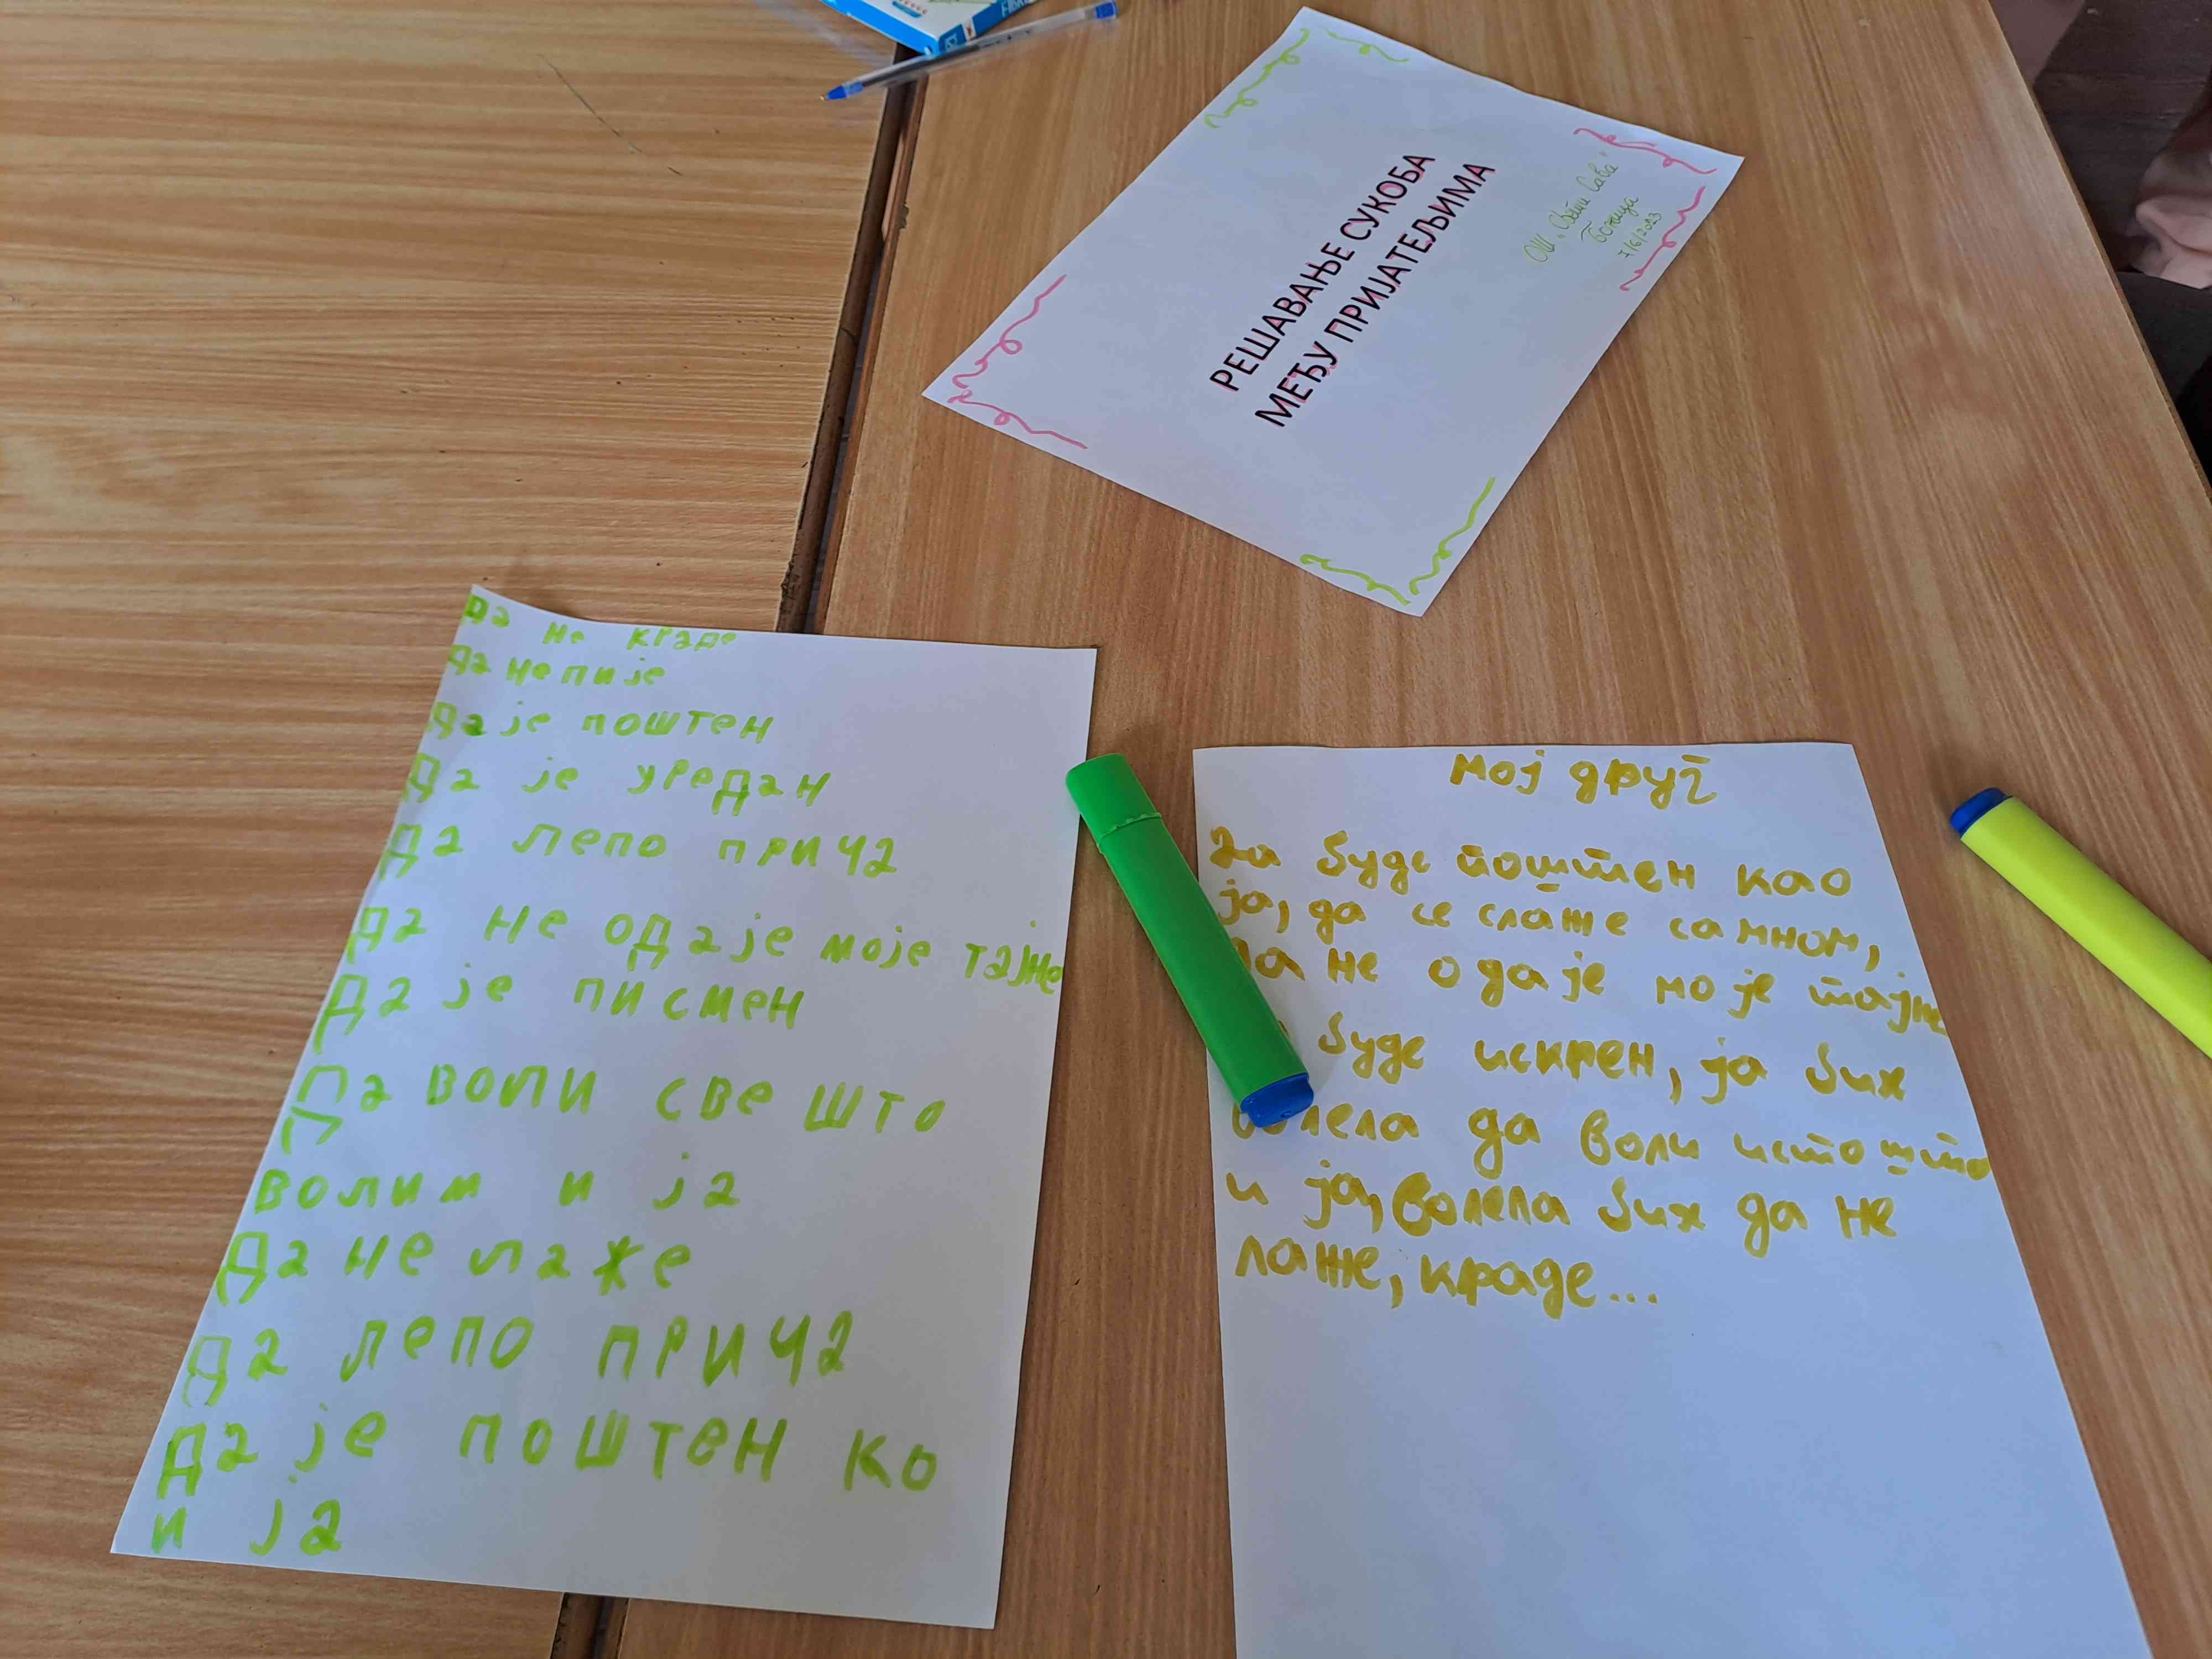 РЕШАВАЊЕ СУКОБА
МЕЂУ ПРИЈАТЕЉИМА
ОШ "Свети Сава"
7/6/2023
Да не краде
Да не пије
Да је поштен
Да је уредан
Да лепо прича
Да не одаје моје тајне
Да је писмен
Да воли све што
волим и ја
Да не лаже
Да лепо прича
Да је поштен ко
и ја
Мој друг
Да буде поштен као
ја, да се слаже самном,
да не одаје моје тајне
буде искрен, ја бих
волела да воли исто што
и ја, волела бих да не
лаже, краде...